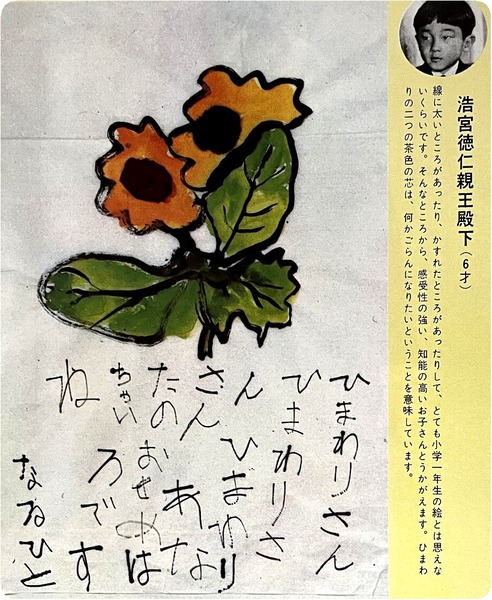 浩宮徳仁親王殿下(6才)
線に太いところがあったり、かすれたところがあったりして、とても小学一年生の絵とは思えな
いくらいです。そんなところから、感受性の強い、知能の高いお子さんとうかがえます。ひまわ
りの二つの茶色の芯は、何かごらんになりたいということを意味しています。
ひまわりさん
ひまわりさ
ん ひまわり
さん あな
たの おめめは
ちゃいろです
ね
なるひと